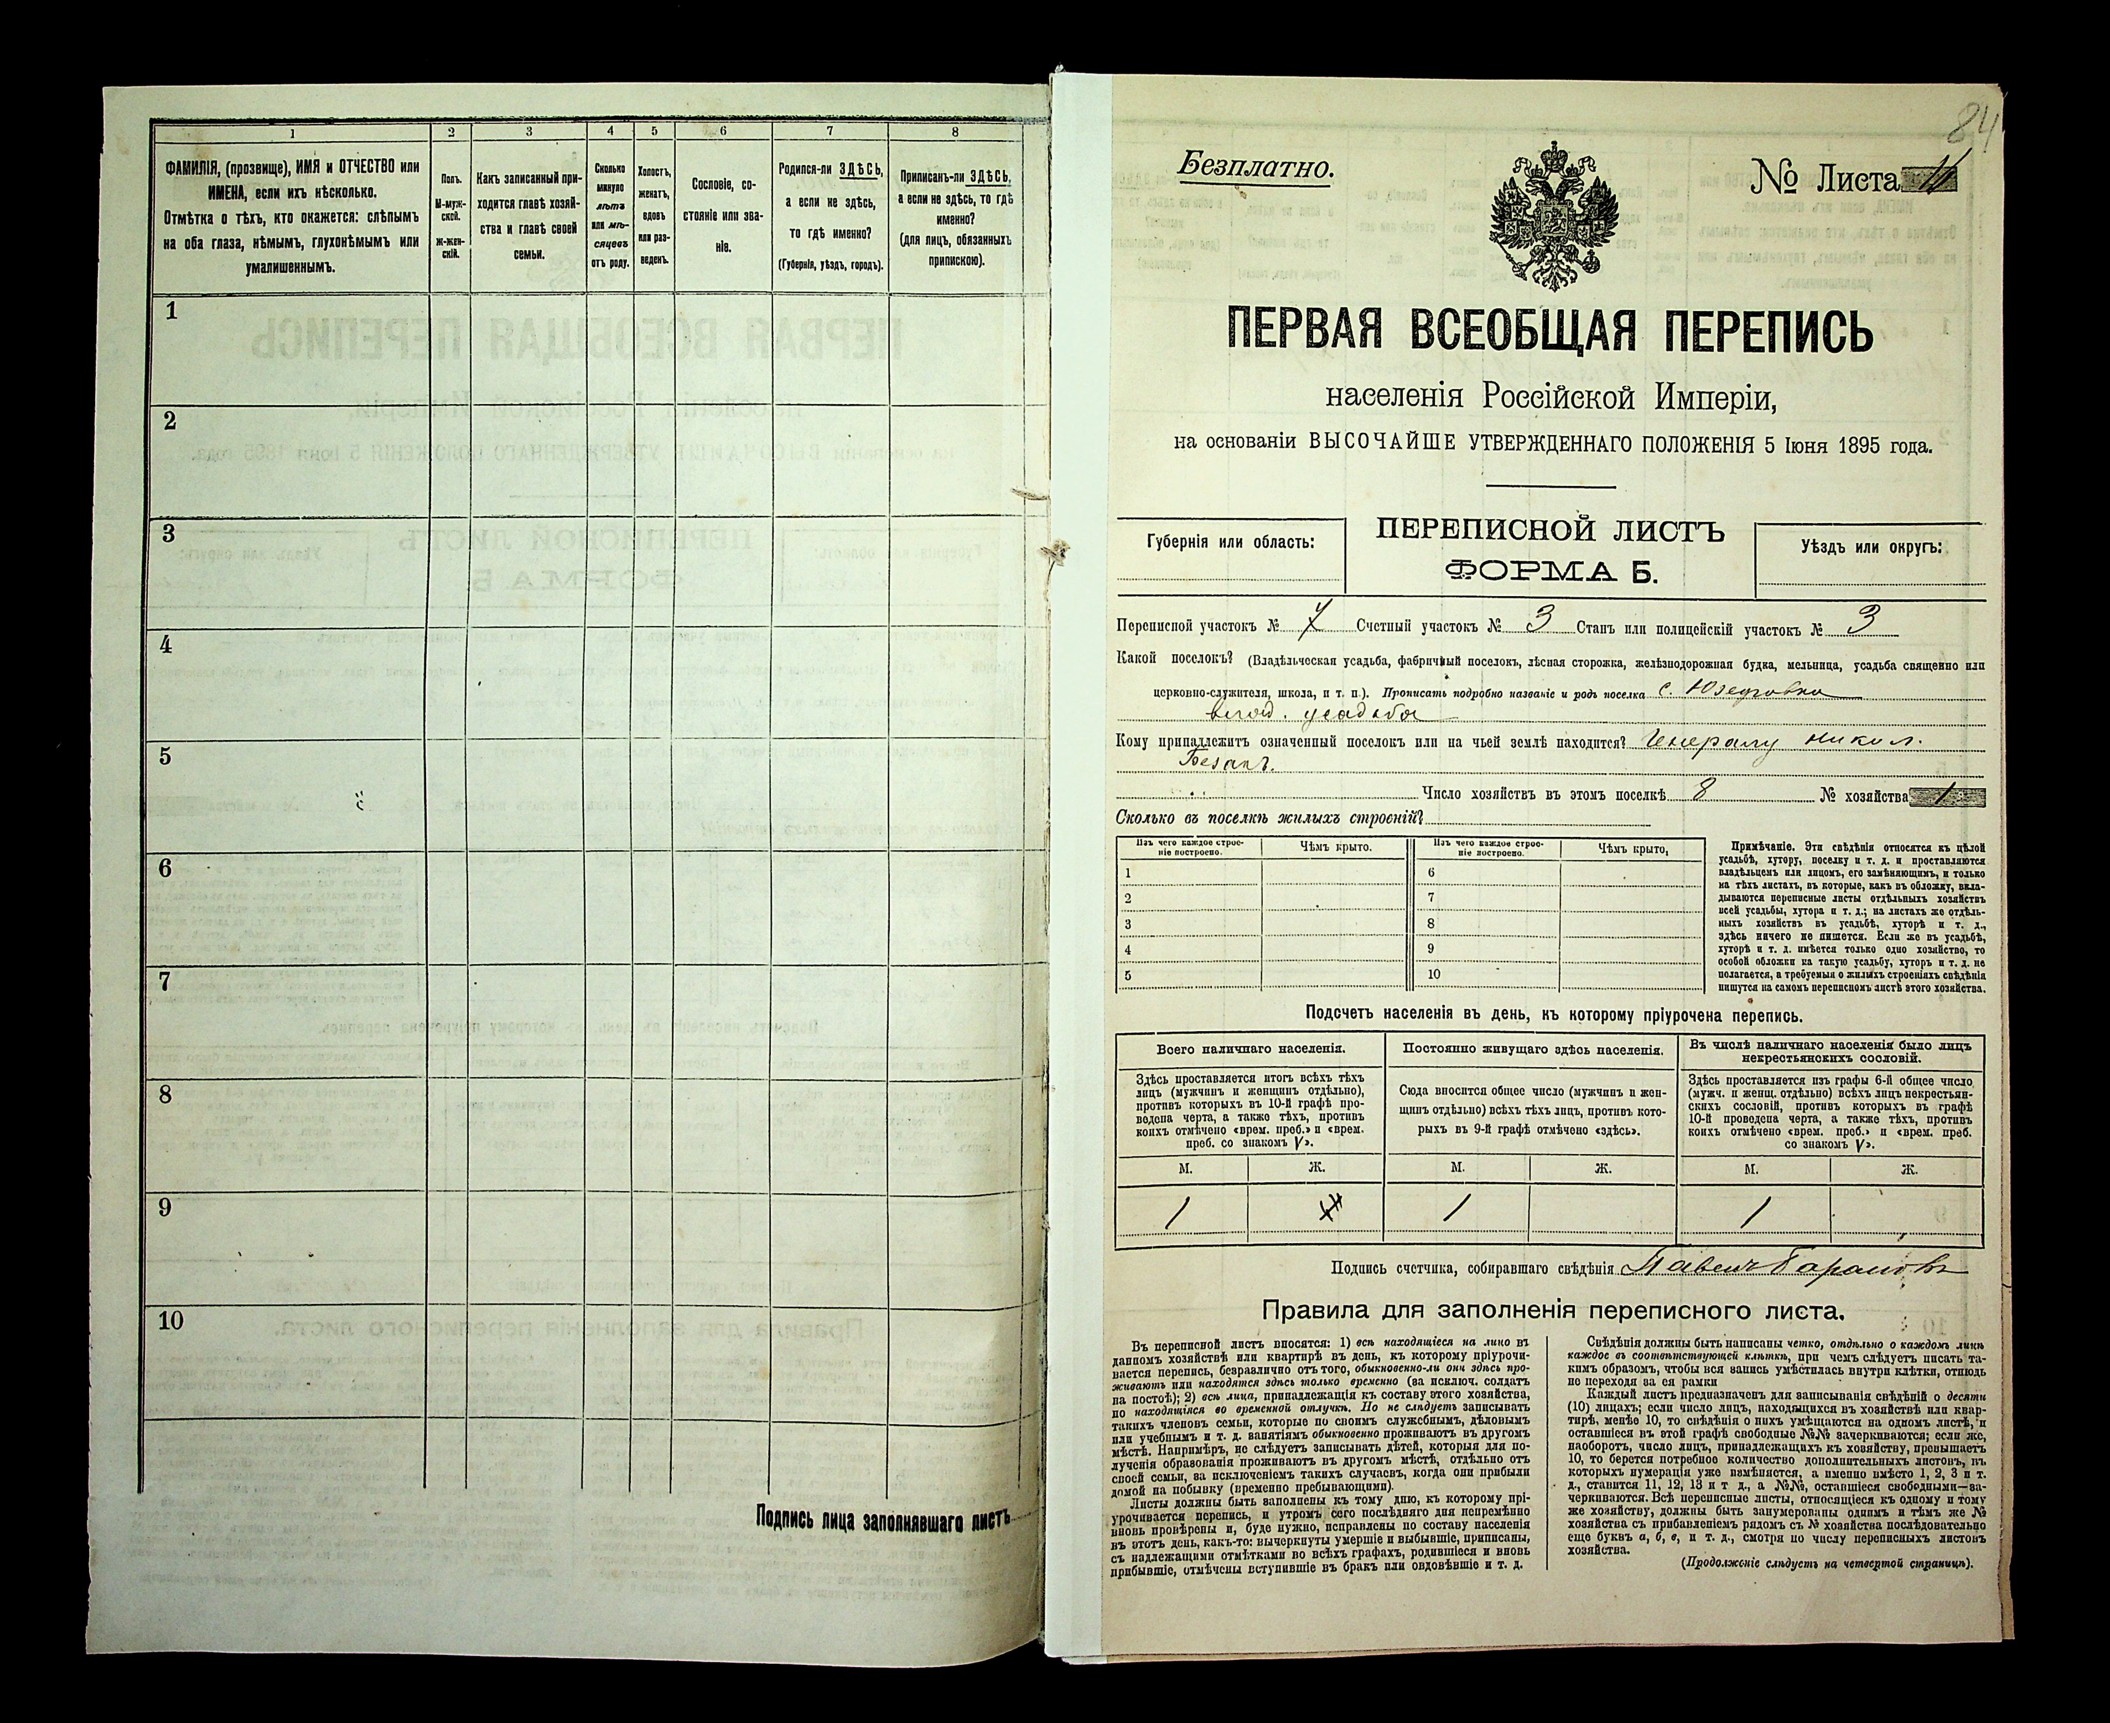 1 2 3 4 5 6 7 8
ФАМИЛІЯ, (прозвище), ИМЯ и ОТЧЕСТВО или
ИМЕНА, если ихъ нѣсколько.
Отмѣтка о тѣхъ, кто окажется: слѣпымъ
на оба глаза, нѣмымъ, глухонѣмымъ или
умалишеннымъ.
Полъ.
М-муж-
ской.
Ж-жен-
скій.
Какъ записанный при-
ходится главѣ хозяй-
ства и главѣ своей
семьи.
Сколько
минуло
лѣтъ
или мѣ-
сяцевъ
отъ роду.
Холостъ,
женатъ,
вдовъ
или раз-
веденъ.
Сословіе, со-
стояніе или зва-
ніе.
Родился-ли ЗДѢСЬ,
а если не здѣсь,
то гдѣ именно?
(Губернія, уѣздъ, городъ).
Приписанъ-ли ЗДѢСЬ,
а если не здѣсь, то гдѣ
именно?
(для лицъ, обязанныхъ
припискою).
1
2
3
4
5
6
7
8
9
10
Подпись лица заполнявшаго листъ
84
Безплатно.
№ Листа
ПЕРВАЯ ВСЕОБЩАЯ ПЕРЕПИСЬ
населенія Россійской Имперіи,
на основаніи ВЫСОЧАЙШЕ УТВЕРЖДЕННАГО ПОЛОЖЕНІЯ 5 Іюня 1895 года.
Губернія или область:
ПЕРЕПИСНОЙ ЛИСТЪ
ФОРМА Б.
Уѣздъ или округъ:
Переписной участокъ № Счетный участокъ № 3 Станъ или полицейскій участокъ № 3
Какой поселокъ? (Владѣльческая усадьба, фабричный поселокъ, лѣсная сторожка, желѣзнодорожная будка, мельница, усадьба священно или
церковно-служителя, школа, и т. п.). Прописать подробно названіе и родъ поселка с. Юзефовка
влад. усадьба
Кому принадлежитъ означенный поселокъ или на чьей землѣ находится? Генералу Никол.
Безакъ.
Число хозяйствъ въ этомъ поселкѣ 8 № хозяйства 1
Сколько въ поселкѣ жилыхъ строеній?
Изъ чего каждое строе-
ніе построено.
Чѣмъ крыто.
Изъ чего каждое строе-
ніе построено.
Чѣмъ крыто,
1 6
2 7
3 8
4 9
5 10
Примѣчаніе. Эти свѣдѣнія относятся къ цѣлой
усадьбѣ, хутору, поселку и т. д. и проставляются
владѣльцемъ или лицомъ, его замѣняющимъ, и только
на тѣхъ листахъ, въ которые, какъ въ обложку, вкла-
дываются переписные листы отдѣльныхъ хозяйствъ
всей усадьбы, хутора и т. д.; на листахъ же отдѣль-
ныхъ хозяйствъ въ усадьбѣ, хуторѣ и т. д.,
здѣсь ничего не пишется. Если же въ усадьбѣ,
хуторѣ и т. д. имѣется только одно хозяйство, то
особой обложки на такую усадьбу, хуторъ и т. д. не
полагается, а требуемыя о жилыхъ строеніяхъ свѣдѣнія
пишутся на самомъ переписномъ листѣ этого хозяйства.
Подсчетъ населенія въ день, къ которому пріурочена перепись.
Всего наличнаго населенія.
Здѣсь проставляется итогъ всѣхъ тѣхъ
лицъ (мужчинъ и женщинъ отдѣльно),
противъ которыхъ въ 10-й графѣ про-
ведена черта, а также тѣхъ, противъ
коихъ отмѣчено «врем. преб.» и «врем.
преб. со знакомъ V».
Постоянно живущаго здѣсь населенія.
Сюда вносится общее число (мужчинъ и жен-
щинъ отдѣльно) всѣхъ тѣхъ лицъ, противъ кото-
рыхъ въ 9-й графѣ отмѣчено «здѣсь».
Въ числѣ наличнаго населенія было лицъ
некрестьянскихъ сословій.
Здѣсь проставляется изъ графы 6-й общее число
(мужч. и женщ. отдѣльно) всѣхъ лицъ некрестьян-
скихъ сословій, противъ которыхъ въ графѣ
10-й проведена черта, а также тѣхъ, противъ
коихъ отмѣчено «врем. преб.» и «врем. преб.
со знакомъ V».
М. Ж. М. Ж. М. Ж.
1 1 1
Подпись счетчика, собиравшаго свѣдѣнія Павелъ
Правила для заполненія переписного листа.
Въ переписной листъ вносятся: 1) всѣ находящіеся на лицо въ
данномъ хозяйствѣ или квартирѣ въ день, къ которому пріурочи-
вается перепись, безразлично отъ того, обыкновенно-ли они здѣсь про-
живаютъ или находятся здѣсь только временно (за исключ. солдатъ
на постоѣ); 2) всѣ лица, принадлежащія къ составу этого хозяйства,
но находящіяся во временной отлучкѣ. Но не слѣдуетъ записывать
такихъ членовъ семьи, которые по своимъ служебнымъ, дѣловымъ
или учебнымъ и т. д. занятіямъ обыкновенно проживаютъ въ другомъ
мѣстѣ. Напримѣръ, не слѣдуетъ записывать дѣтей, которыя для по-
лученія образованія проживаютъ въ другомъ мѣстѣ, отдѣльно отъ
своей семьи, за исключеніемъ такихъ случаевъ, когда они прибыли
домой на побывку (временно пребывающими).
Листы должны быть заполнены къ тому дню, къ которому прі-
урочивается перепись, и утромъ сего послѣдняго дня непремѣнно
вновь провѣрены и, буде нужно, исправлены по составу населенія
въ этотъ день, какъ-то: вычеркнуты умершіе и выбывшіе, приписаны,
съ надлежащими отмѣтками во всѣхъ графахъ, родившіеся и вновь
прибывшіе, отмѣчены вступившіе въ бракъ или овдовѣвшіе и т. д.
Свѣдѣнія должны быть написаны четко, отдѣльно о каждомъ лицѣ
каждое въ соотвѣтствующей клѣткѣ, при чемъ слѣдуетъ писать та-
кимъ образомъ, чтобы вся запись умѣстилась внутри клѣтки, отнюдь
не переходя за ея рамки
Каждый листъ предназначенъ для записыванія свѣдѣній о десяти
(10) лицахъ; если число лицъ, находящихся въ хозяйствѣ или квар-
тирѣ, менѣе 10, то свѣдѣнія о нихъ умѣщаются на одномъ листѣ, и
оставшіеся въ этой графѣ свободные №№ зачеркиваются; если же,
наоборотъ, число лицъ, принадлежащихъ къ хозяйству, превышаетъ
10, то берется потребное количество дополнительныхъ листовъ, въ
которыхъ нумерація уже измѣняется, а именно вмѣсто 1, 2, 3 и т.
д., ставится 11, 12, 13 и т д., а №№, оставшіеся свободными—за-
черкиваются. Всѣ переписные листы, относящіеся къ одному и тому
же хозяйству, должны быть занумерованы однимъ и тѣмъ же №
хозяйства съ прибавленіемъ рядомъ съ № хозяйства послѣдовательно
еще буквъ а, б, в, и т. д., смотря по числу переписныхъ листовъ
хозяйства.
(Продолженіе слѣдуетъ на четвертой страницѣ).